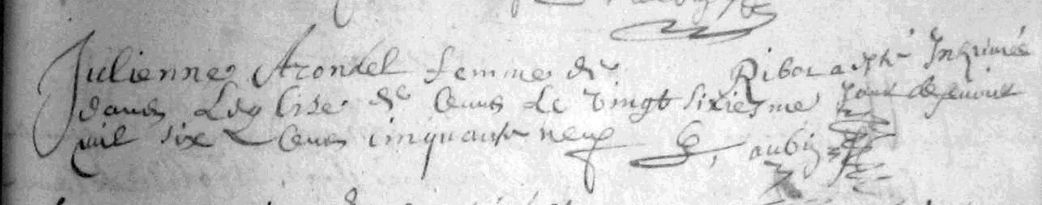 Julienne Arondel femme de Ribot a esté Inhumée
dans Leglise de ceans Le vingt sixiesme jour de
mil six Cens cinquante neuf G, aubin